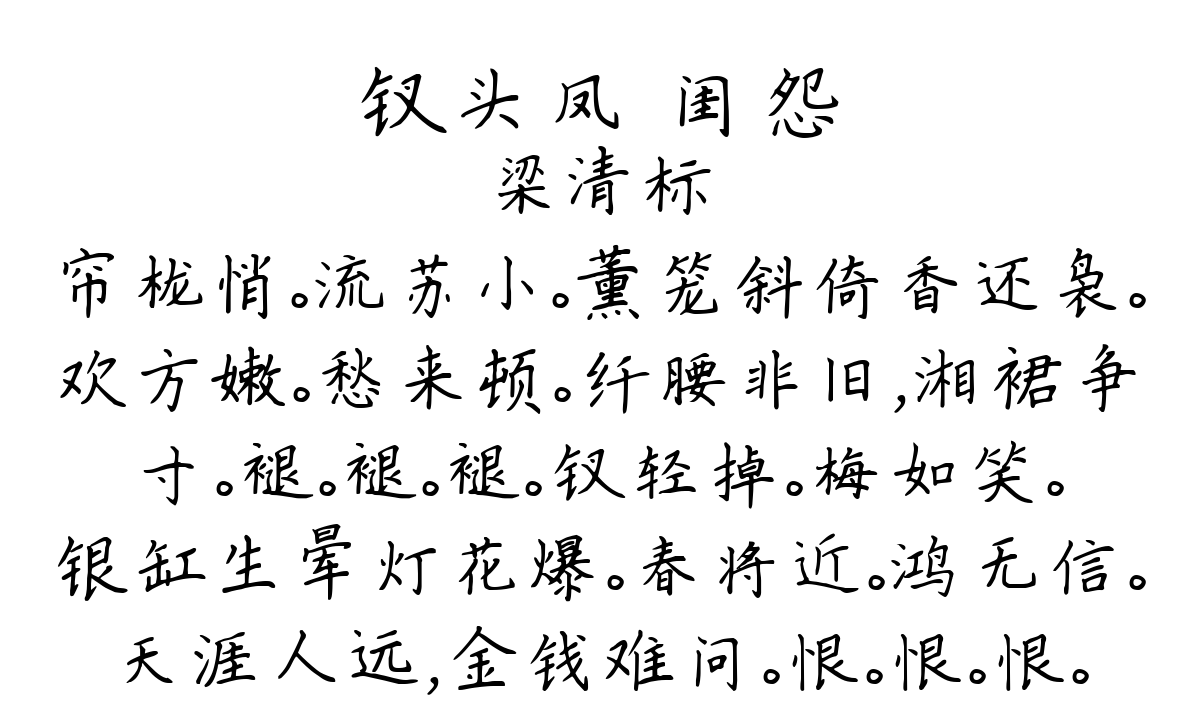 钗头凤 闺怨
梁清标
帘栊悄。流苏小。薰笼斜倚香还袅。
欢方嫩。愁来顿。纤腰非旧,湘裙争
寸。褪。褪。褪。钗轻掉。梅如笑。
银缸生晕灯花爆。春将近。鸿无信。
天涯人远,金钱难问。恨。恨。恨。